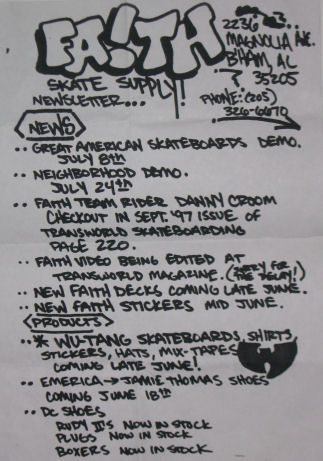 FAITH
SKATE SUPPLY!
NEWSLETTER...
2236
MAGNOLIA AVE.
B'HAM, AL
35205
PHONE: (205)
326-6670
NEWS
·· GREAT AMERICAN SKATEBOARDS DEMO.
JULY 8th
·· NEIGHBORHOOD DEMO.
JULY 24th
·· FAITH TEAM RIDER DANNY CROOM
CHECKOUT IN SEPT. '97 ISSUE OF
TRANSWORLD SKATEBOARDING
PAGE 220.
·· FAITH VIDEO BEING EDITED AT
TRANSWORLD MAGAZINE. (SORRY FOR THE DELAY!)
·· NEW FAITH DECKS COMING LATE JUNE.
·· NEW FAITH STICKERS MID JUNE.
<PRODUCTS>
··* WU-TANG SKATEBOARDS, SHIRTS,
STICKERS, HATS, MIX-TAPES
COMING LATE JUNE!
·· EMERICA → JAMIE THOMAS SHOES
COMING JUNE 18th
·· DC SHOES
RUDY II'S NOW IN STOCK
PLUGS NOW IN STOCK
BOXERS NOW IN STOCK